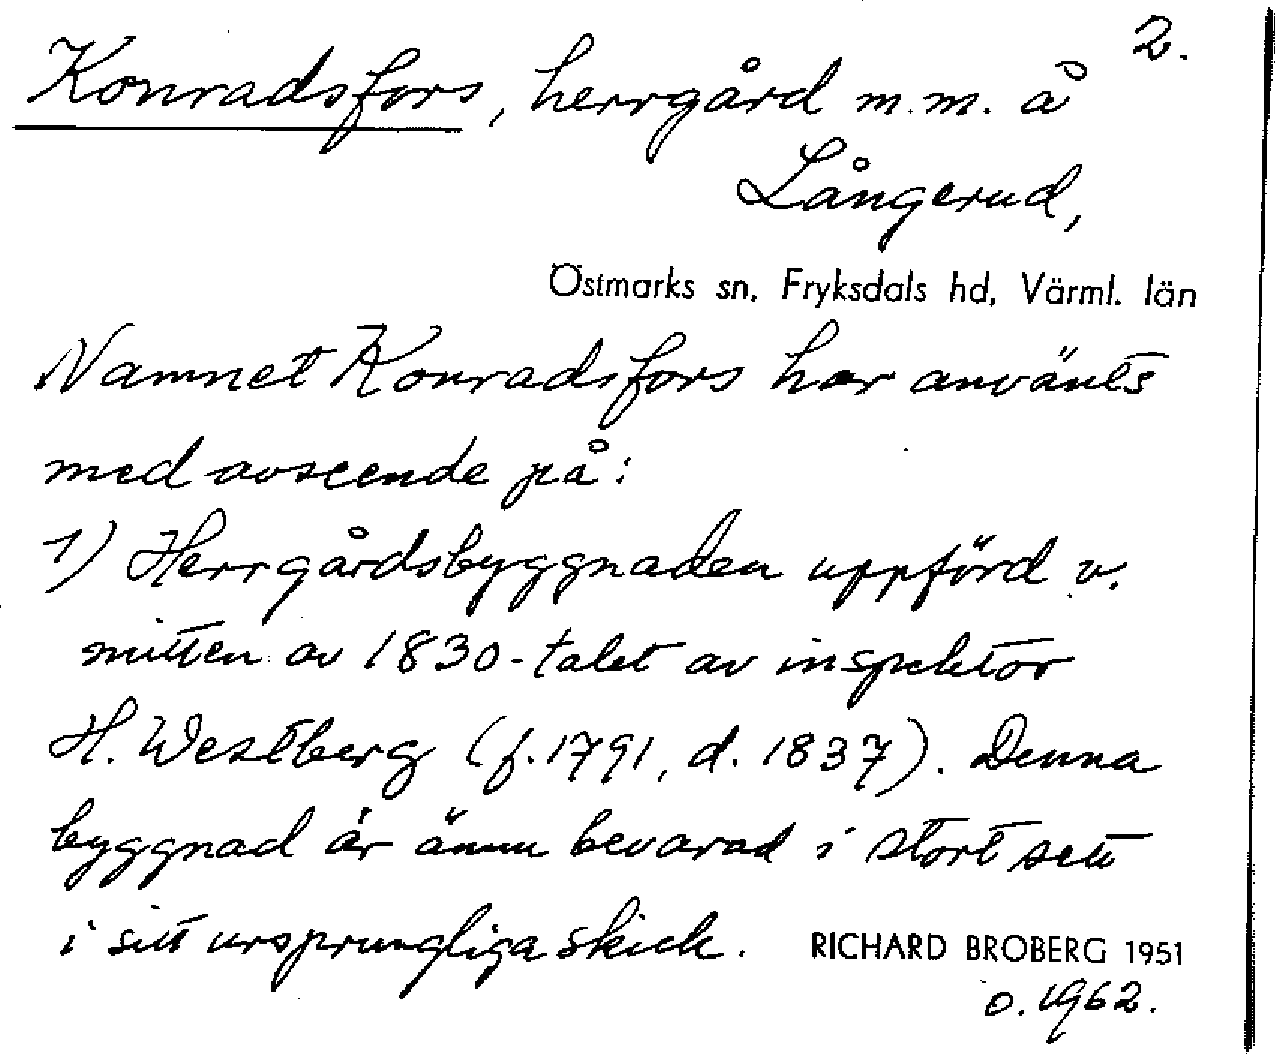 2.
Konradsfors, herrgård m.m. å
Långerud,
Östmarks sn, Fryksdals hd, Värml. län
Namnet Konradsfors har använts
med avseende på:
1) Herrgårdsbyggnaden uppförd v.
mitten av 1830-talet av inspektor
H. Westberg (f. 1791, d. 1837). Denna
byggnad är ännu bevarad i stort sett
i sitt ursprungliga skick.
RICHARD BROBERG 1951
o. 1962.